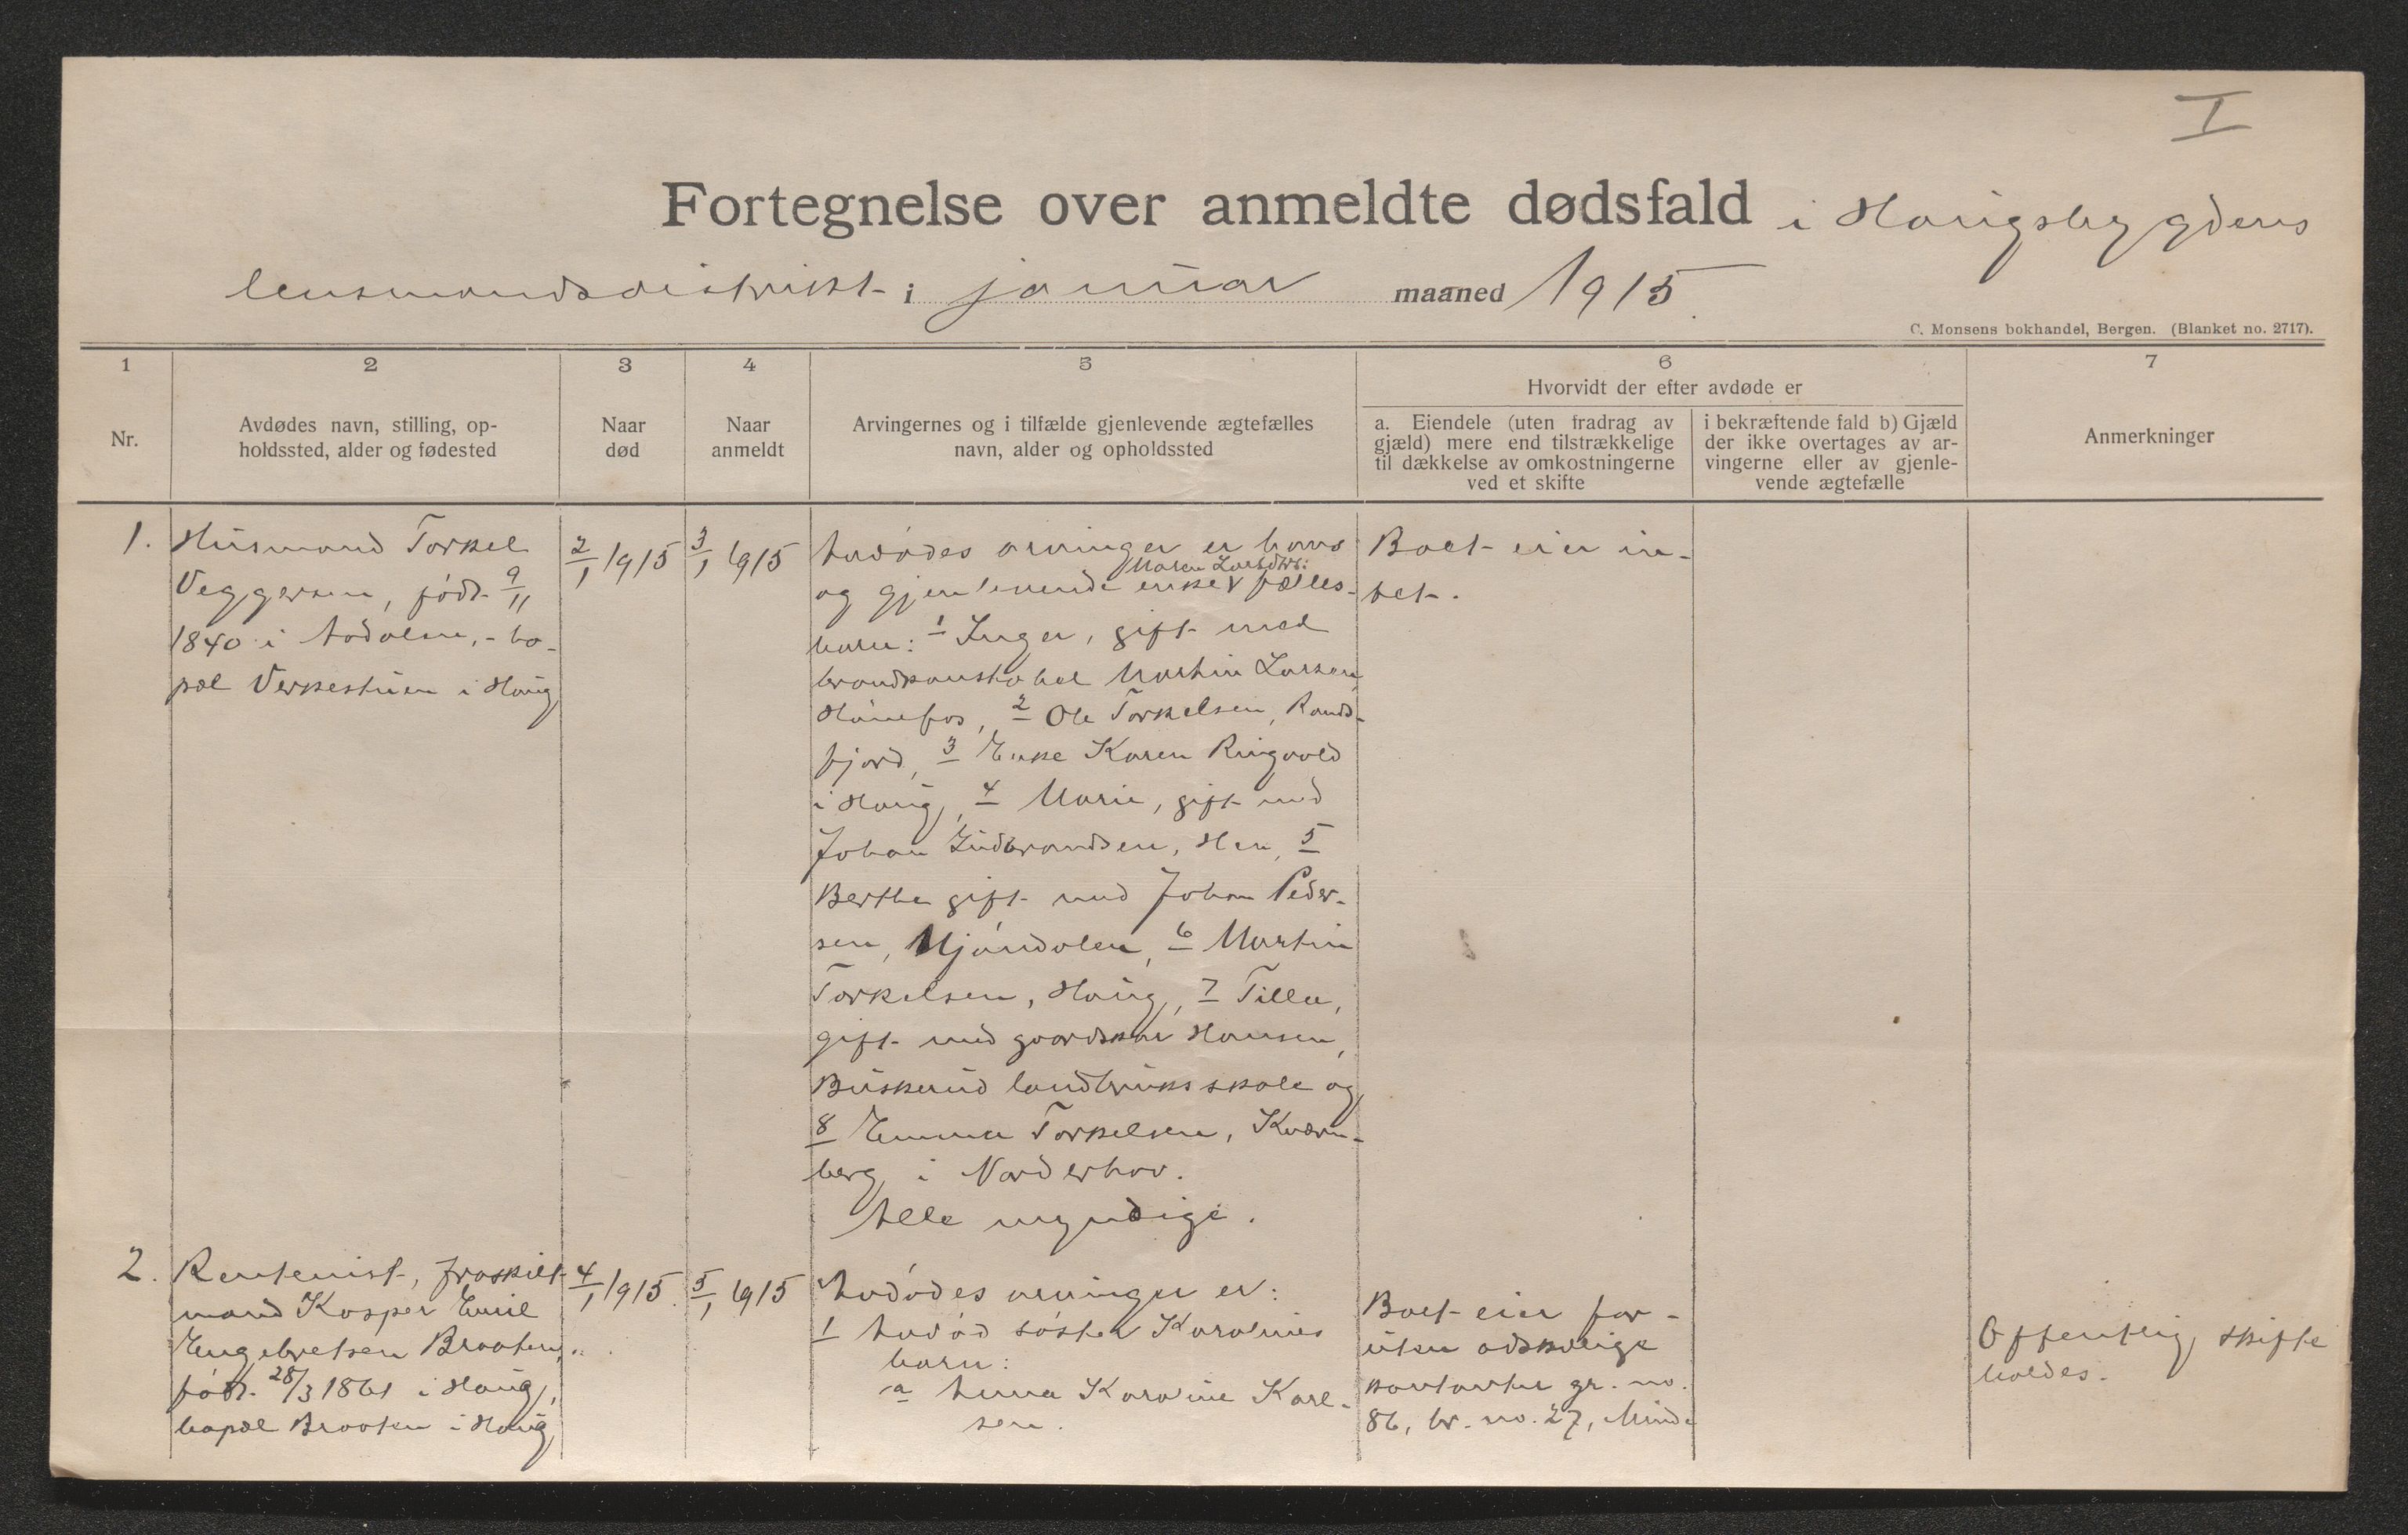 I
Fortegnelse over anmeldte dødsfald i Haugsbygdens
lensmandsdistrikt i januar maaned 1915.
C. Monsens bokhandel, Bergen. (Blanket no. 2717).
1
Nr.
2
Avdødes navn, stilling, op-
holdssted, alder og fødested
3
Naar
død
4
Naar
anmeldt
5
Arvingernes og i tilfælde gjenlevende ægtefælles
navn, alder og opholdssted
6
Hvorvidt der efter avdøde er
a. Eiendele (uten fradrag av
gjæld) mere end tilstrækkelige
til dækkelse av omkostningerne
ved et skifte
i bekræftende fald b) Gjæld
der ikke overtages av ar-
vingerne eller av gjenle-
vende ægtefælle
7
Anmerkninger
1.
Husmand Torkel
Veggersen, født 9/11
1840 i Aadalen, - bo-
pæl Verkestuen i Haug
2/1 1915
3/1 1915
Avdødes arvinger er hans
Maren Larsdtr:
og gjenlevende enke fælles-
barn: 1 Inger, gift med
brandkonstabel Martin Larsen,
Hönefos, 2 Ole Torkelsen, Rands-
fjord, 3 Enke Karen Ringvold
i Haug, 4 Marie, gift med
Johan Gudbrandsen, Hen, 5
Berthe gift med Johan Peder-
sen, Mjöndalen, 6 Martin
Torkelsen, Haug, 7 Tilla,
gift med gaardskar Hansen,
Buskerud landbruksskole og
8 Emma Torkelsen, Kværn-
berg i Norderhov.
Alle myndige.
Boet eier in-
tet.
2.
Rentenist, fraskilt
mand Kasper Emil
Engebretsen Braaten,
født 28/3 1861 i Haug,
bopæl Braaten i Haug
4/1 1915.
5/1 1915
Avdødes arvinger er:
1 Avdød søster Karolines
barn:
a Anna Karoline Karl-
sen.
Boet eier for-
uten adskillige
kontanter gr. no.
86, br. no. 27, Minde
Offentlig skifte
holdes.